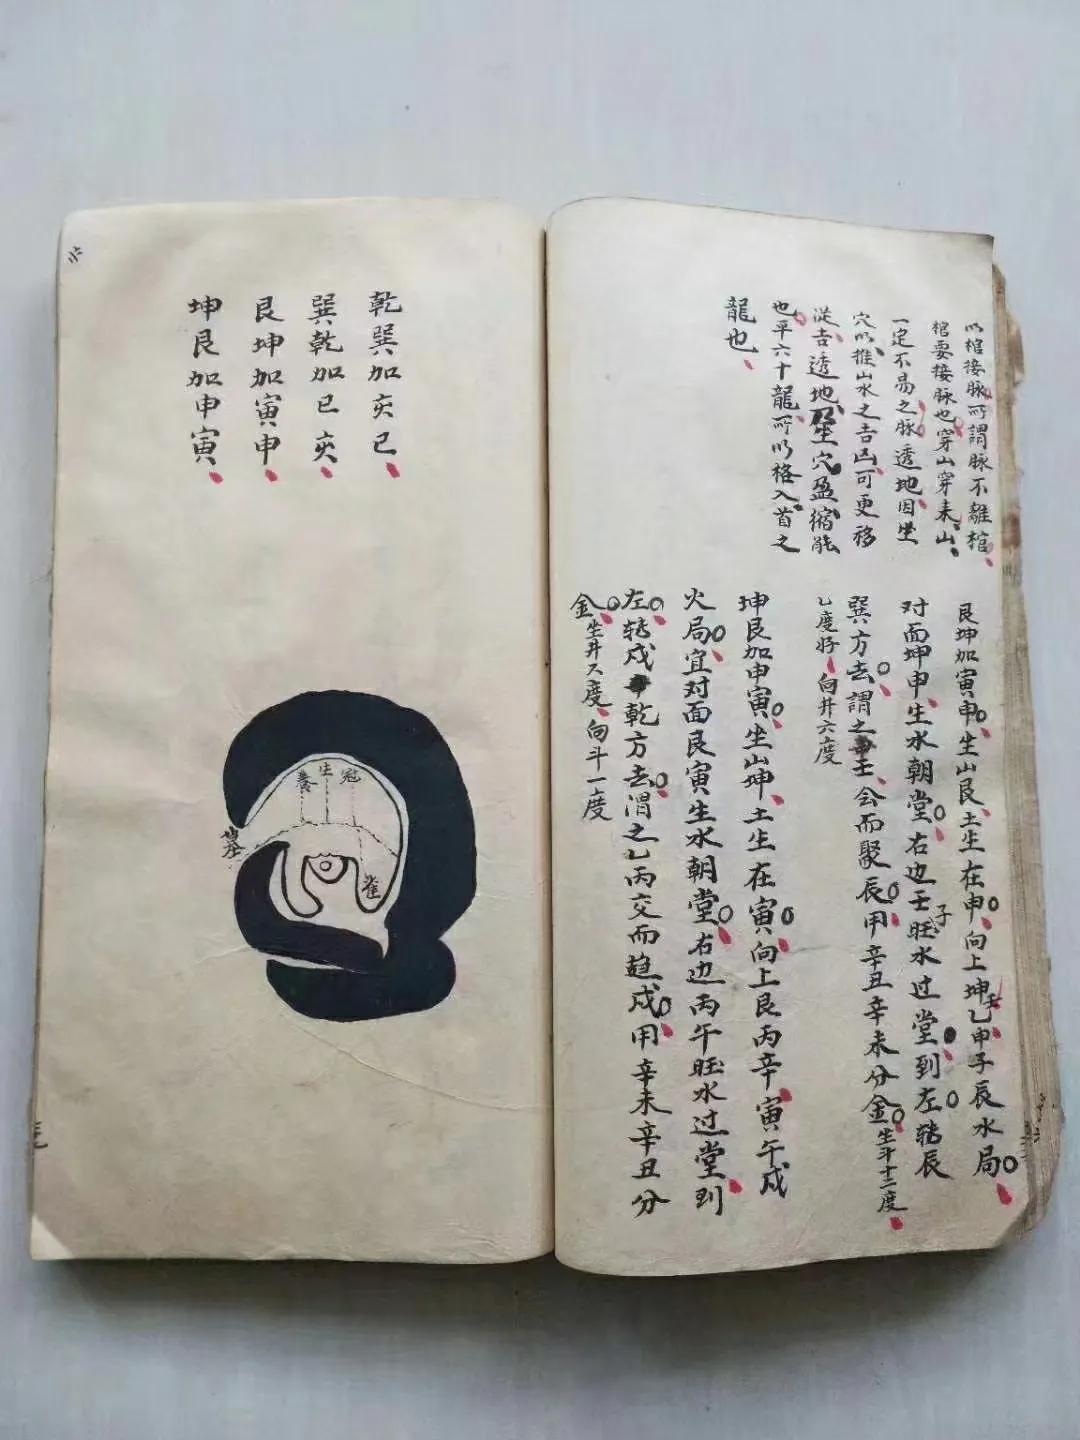 以棺接脉所謂脉不離棺
棺要接脉也穿山穿来山
一定不易之脉透地因坐
穴以推山水之吉凶可更移
從吉透地坐穴盈縮能
也平六十龍所以格入首之
龍也
艮坤加寅申坐山艮土生在申向上坤壬乙申子辰水局
对面坤申生水朝堂右边壬子旺水过堂到左轉辰
巽方去謂之壬会而聚辰用辛丑辛未分金坐斗十二度
乙度好向井六度
坤艮加申寅坐山坤土生在寅向上艮丙辛寅午戍
火局宜对面艮寅生水朝堂右边丙午旺水过堂到
左轉戍乾方去謂之乙丙交而趋戍用辛未辛丑分
金坐井度向斗一度
乾巽加亥巳
巽乾加巳亥
艮坤加寅申
坤艮加申寅
養
生
冠
墓